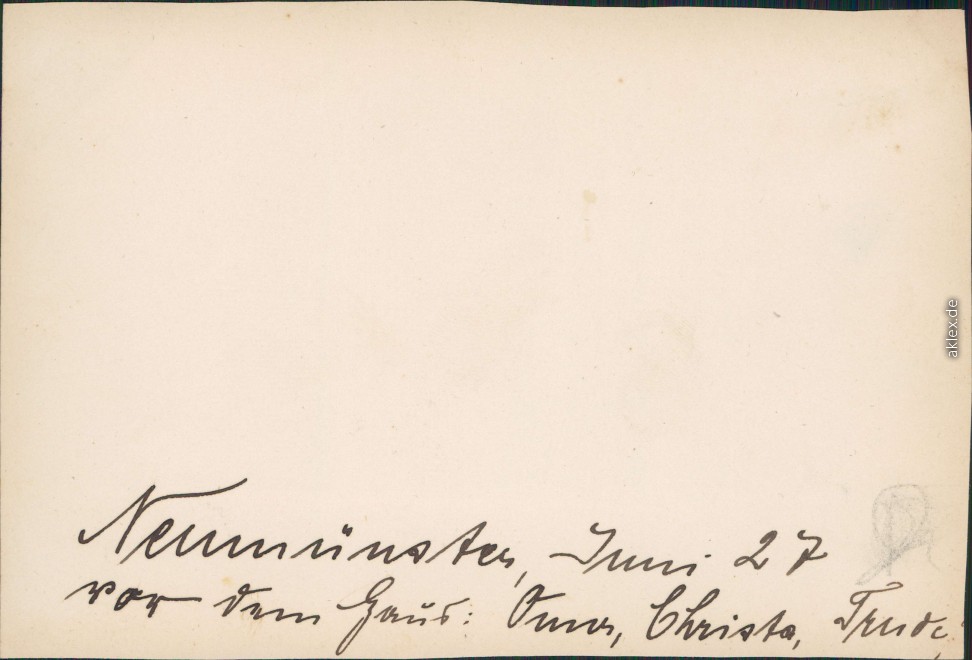 Neumünster, Juni 27
vor dem Haus: Oma, Christa, Trude,
aklex.de